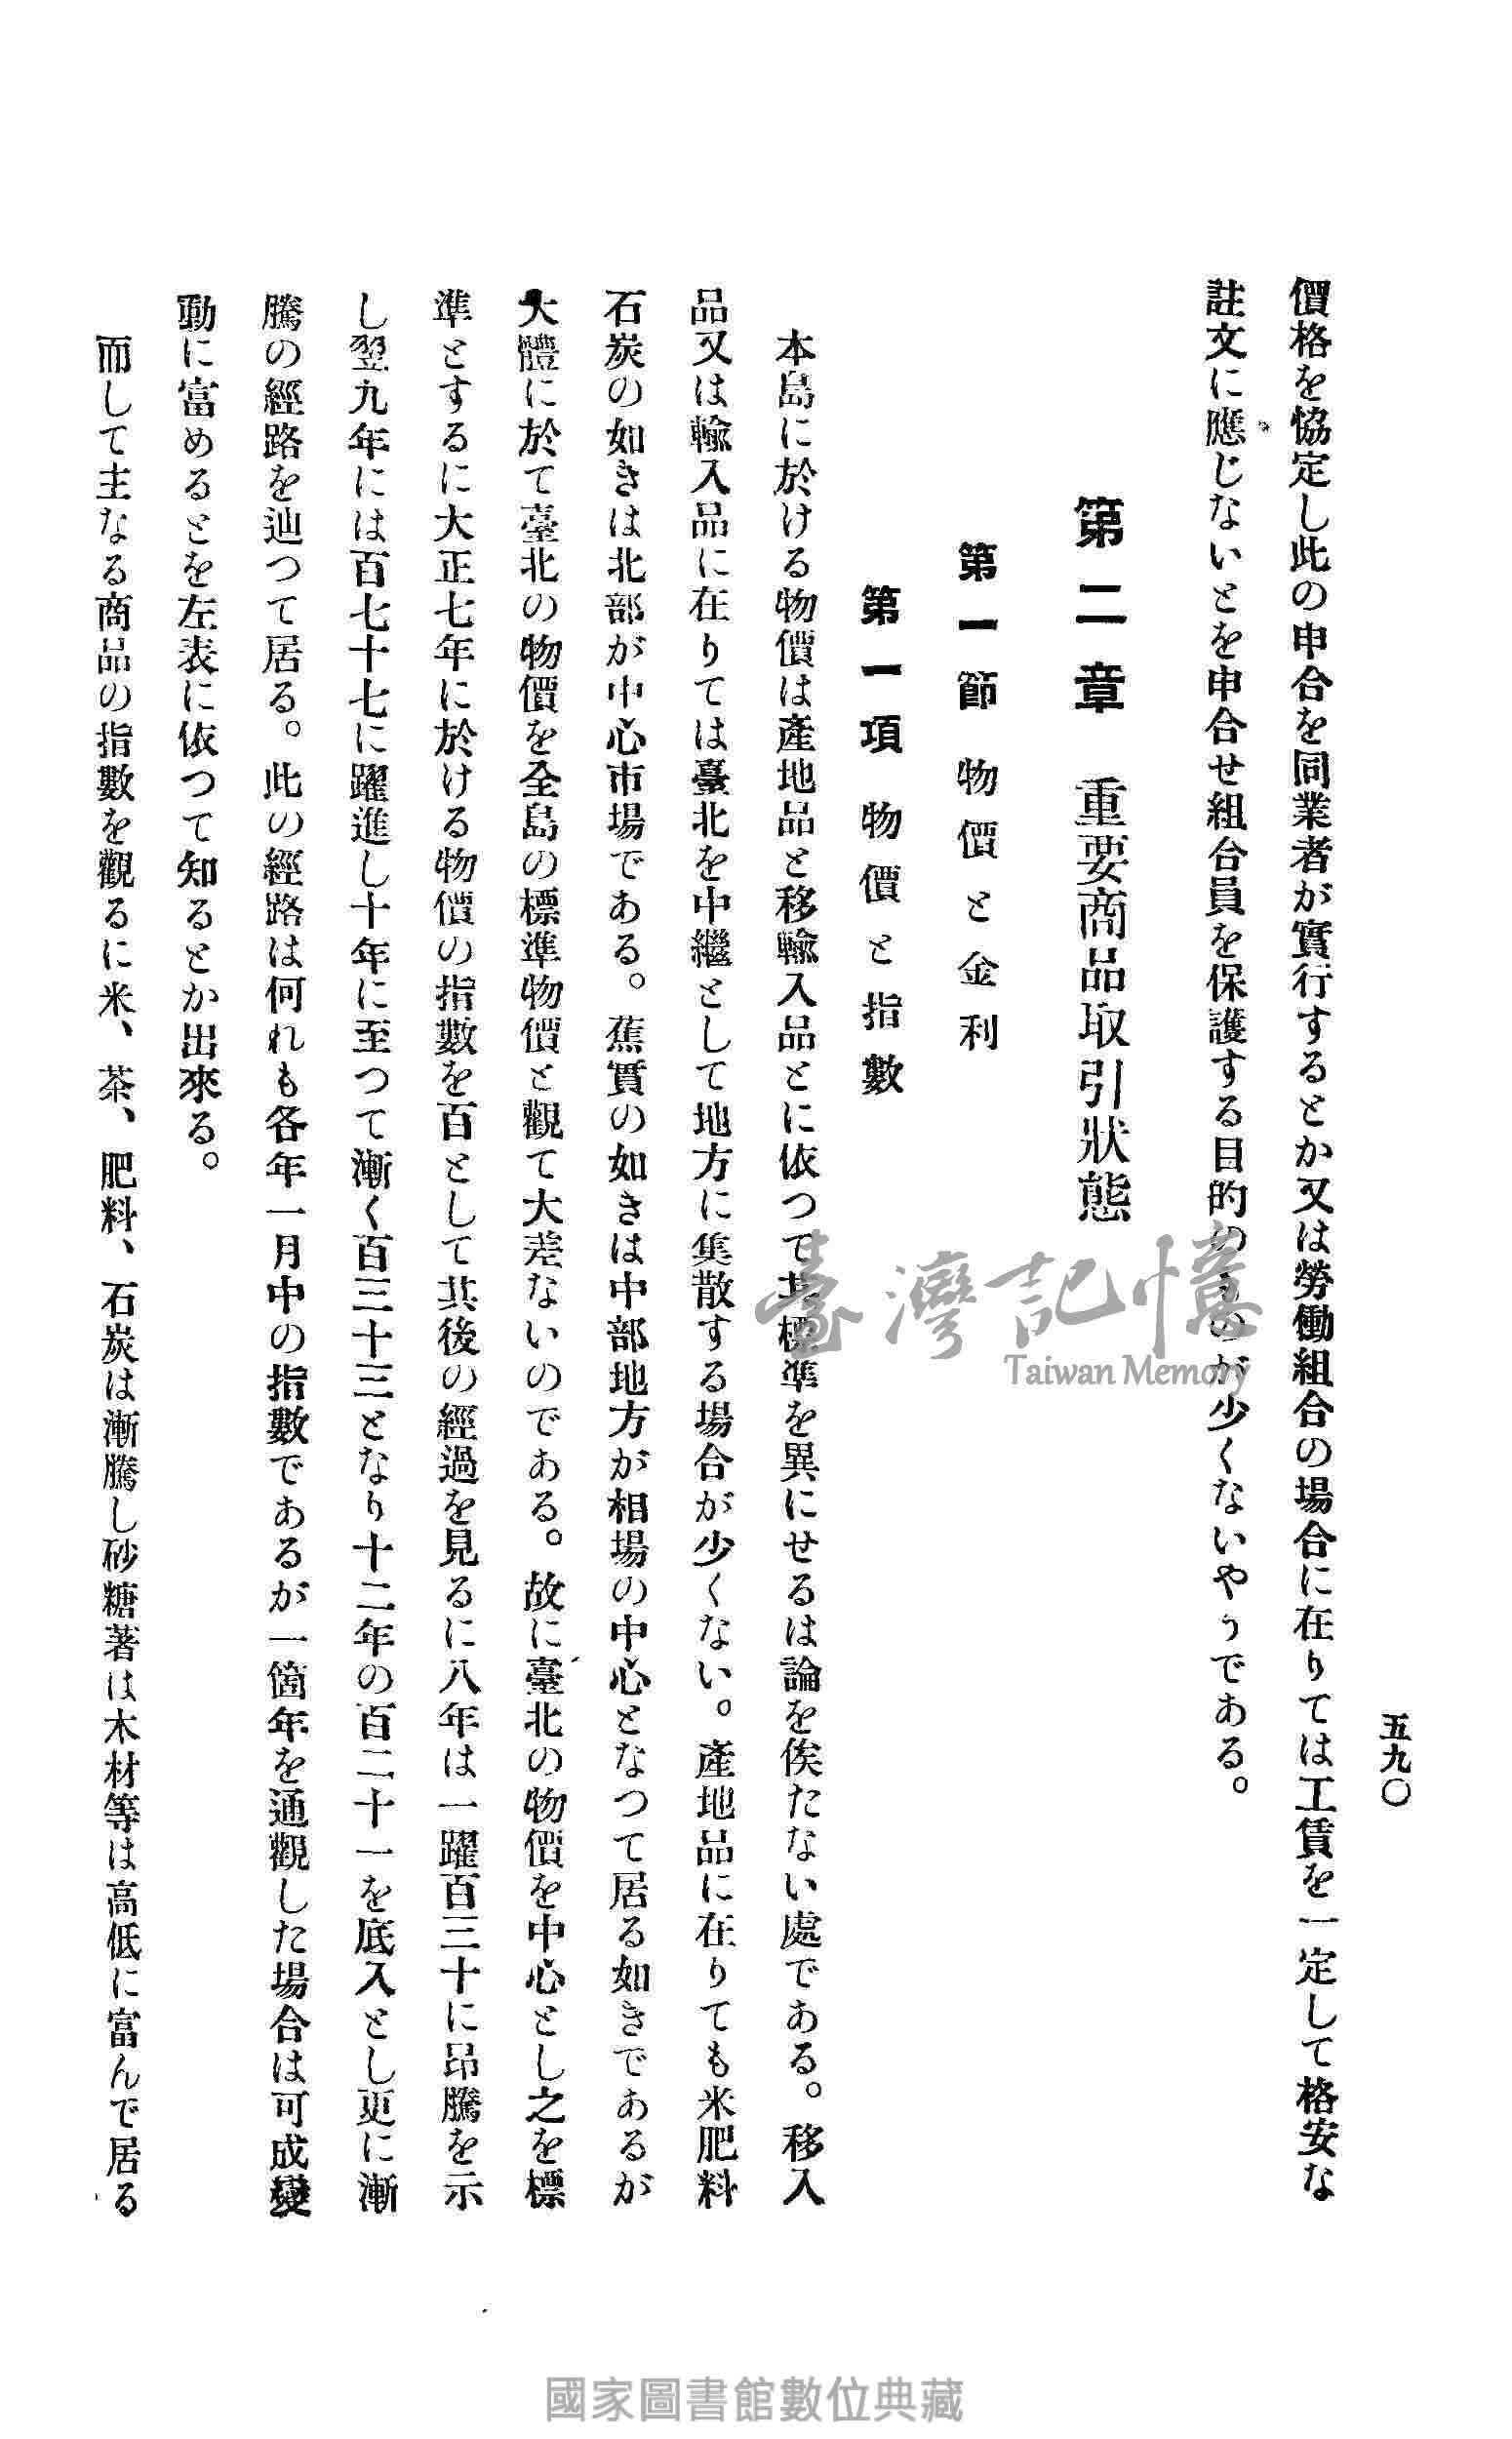 五九〇
價格を協定し此の申合を同業者が實行するとか又は勞働組合の場合に在りては工賃を一定して格安な
註文に應じないとを申合せ組合員を保護する目的のものが少くないやうである。
第二章 重要商品取引狀態
第一節 物價と金利
第一項 物價と指數
本島に於ける物價は產地品と移輸入品とに依つて其標準を異にせるは論を俟たない處である。移入
品又は輸入品に在りては臺北を中繼として地方に集散する場合が少くない。產地品に在りても米肥料
石炭の如きは北部が中心市場である。蕉實の如きは中部地方が相場の中心となつて居る如きであるが
大體に於て臺北の物價を全島の標準物價と觀て大差ないのである。故に臺北の物價を中心とし之を標
準とするに大正七年に於ける物價の指數を百として其後の經過を見るに八年は一躍百三十に昂騰を示
し翌九年には百七十七に躍進し十年に至つて漸く百三十三となり十二年の百二十一を底入とし更に漸
騰の經路を辿つて居る。此の經路は何れも各年一月中の指數であるが一箇年を通觀した場合は可成變
動に富めるとを左表に依つて知るとか出來る。
而して主なる商品の指數を觀るに米、茶、肥料、石炭は漸騰し砂糖著は木材等は高低に富んで居る
臺灣記憶
Taiwan Memory
國家圖書館數位典藏